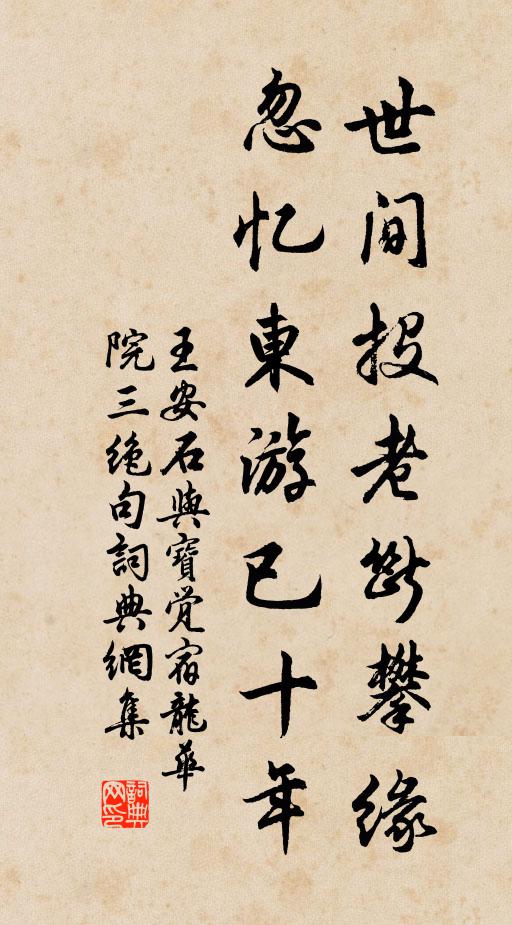 世間投老斷攀緣
忽忆東游已十年
王安石與寶覺宿龍華
院三絕句詞典網集
詞典
网印